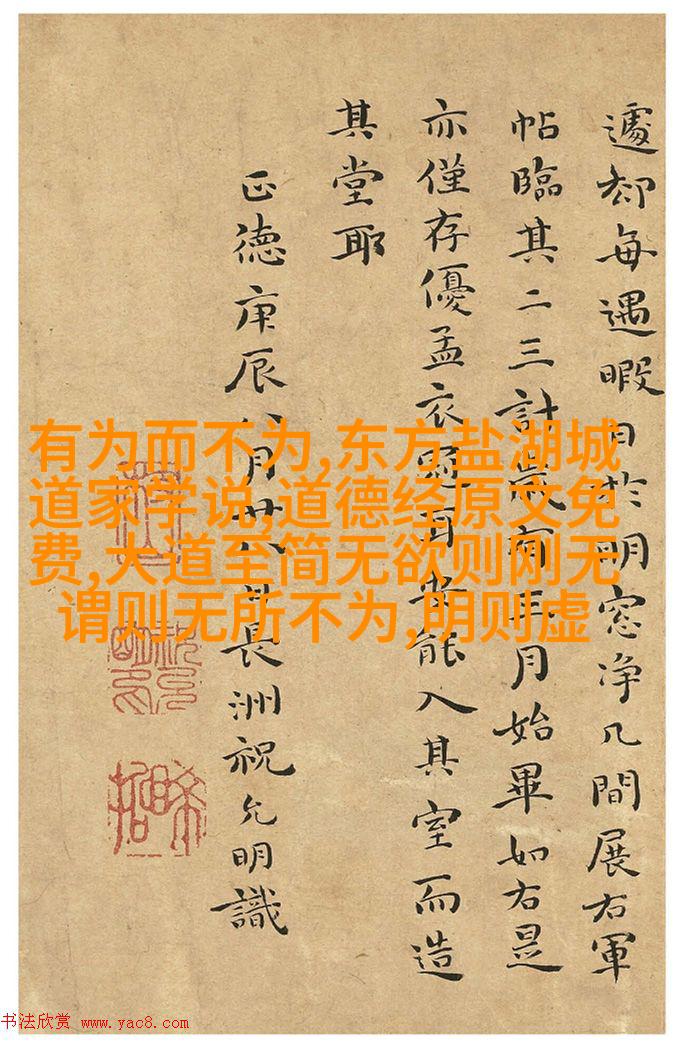 遽却每遇暇日於明窓净几間展右軍
帖臨其二三計歲有月始畢如右是
亦僅存優孟衣冠耳安能入其室而造
其堂耶
正德庚辰八月廿八日長洲祝允明識
有为而不为,东方盐湖城
道家学说,道德经原文免
费,大道至简无欲则刚无
谓则无所不为,明则虚
书法欣赏 www.yac8.com